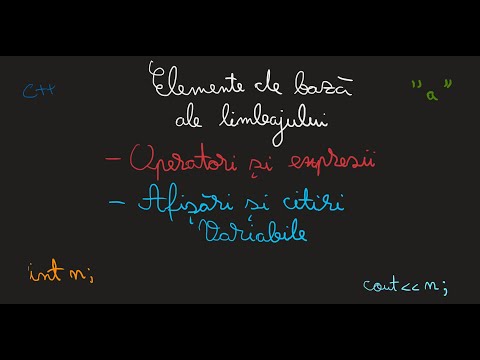 C++
Elemente de bază
"a"
ale limbajului
- Operatori și expresii
- Afișări și citiri
Variabile
int n;
cout<< n;